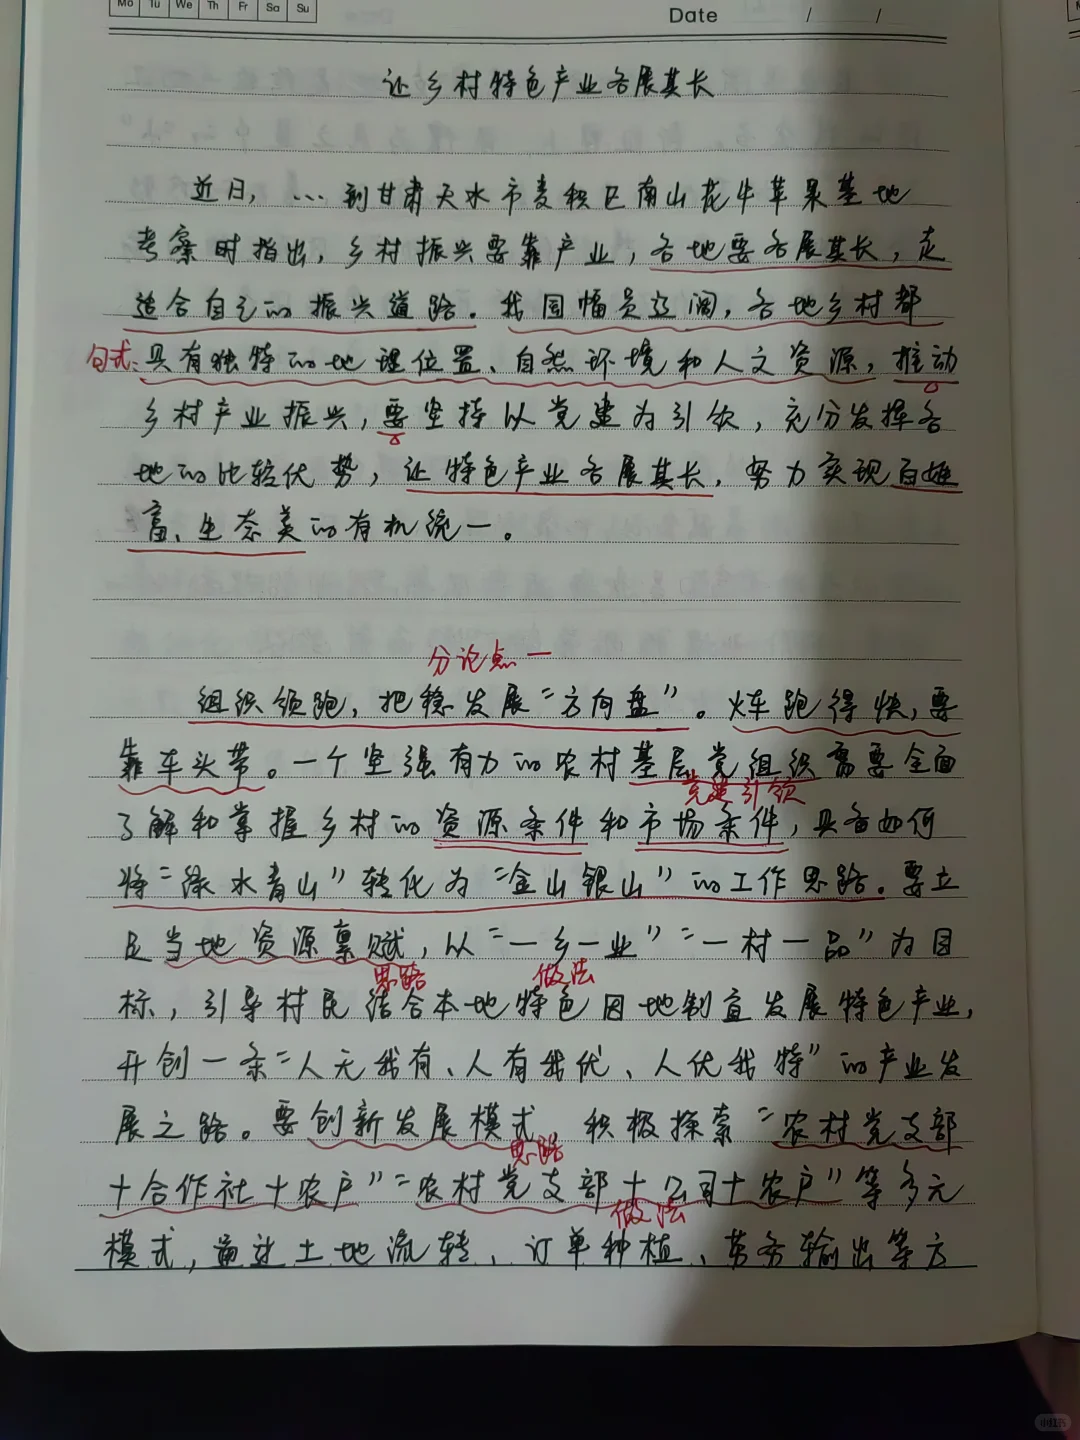 Mo Tu We Th Fr Sa Su
Date / /
让乡村特色产业各展其长
近日，…到甘肃天水市麦积区南山花牛苹果基地
考察时指出，乡村振兴要靠产业，各地要各展其长，走
适合自己的振兴道路。我国幅员辽阔，各地乡村都
句式：具有独特的地理位置、自然环境和人文资源，推动
乡村产业振兴，要坚持以党建为引领，充分发挥各
地的比较优势，让特色产业各展其长，努力实现百姓
富、生态美的有机统一。
分论点一
组织领跑，把稳发展“方向盘”。火车跑得快，要
靠车头带。一个坚强有力的农村基层党组织需要全面
党建引领
了解和掌握乡村的资源条件和市场条件，具备如何
将“绿水青山”转化为“金山银山”的工作思路。要立
足当地资源禀赋，以“一乡一业”“一村一品”为目
思路 做法
标，引导村民结合本地特色因地制宜发展特色产业，
开创一条“人无我有、人有我优、人优我特”的产业发
展之路。要创新发展模式 积极探索“农村党支部
思路
+合作社+农户”“农村党支部+公司+农户”等多元
做法
模式，通过土地流转、订单种植、劳务输出等方
小红书